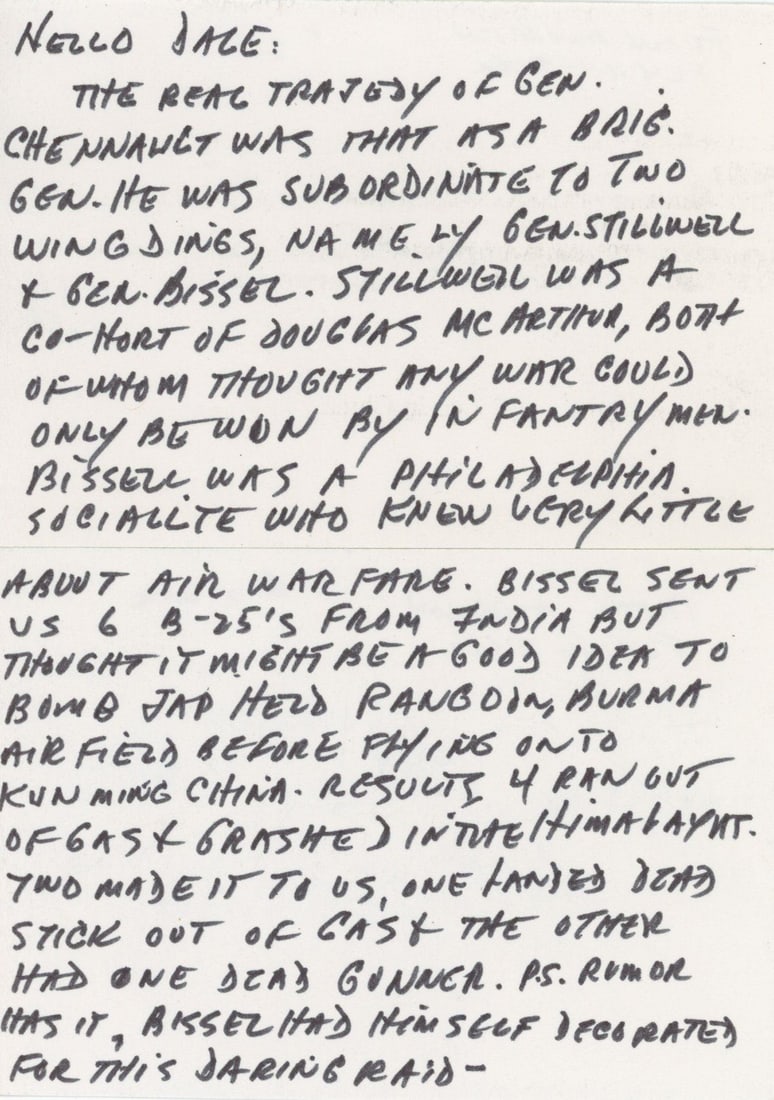 HELLO DALE:
THE REAL TRAJEDY OF GEN.
CHENNAULT WAS THAT AS A BRIG.
GEN. HE WAS SUBORDINATE TO TWO
WING DINGS, NAMELY GEN. STILLWELL
& GEN. BISSEL. STILLWELL WAS A
CO-HORT OF DOUGLAS MCARTHUR, BOTH
OF WHOM THOUGHT ANY WAR COULD
ONLY BE WON BY INFANTRYMEN.
BISSELL WAS A PHILADELPHIA
SOCIALITE WHO KNEW VERY LITTLE
ABOUT AIR WARFARE. BISSEL SENT
US 6 B-25'S FROM INDIA BUT
THOUGHT IT MIGHT BE A GOOD IDEA TO
BOMB JAP HELD RANGOON, BURMA
AIRFIELD BEFORE FLYING ON TO
KUNMING CHINA. RESULTS, 4 RAN OUT
OF GAS & CRASHED IN THE HIMALAYAS.
TWO MADE IT TO US, ONE LANDED DEAD
STICK OUT OF GAS & THE OTHER
HAD ONE DEAD GUNNER. P.S. RUMOR
HAS IT, BISSEL HAD HIMSELF DECORATED
FOR THIS DARING RAID-